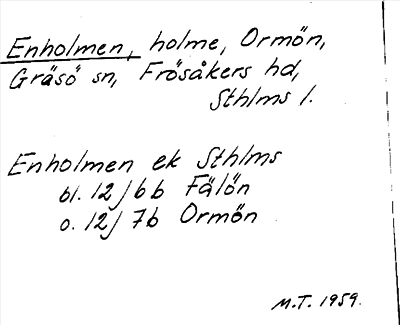 Enholmen, holme, Ormön,
Gräsö sn, Frösåkers hd,
Sthlms l.
Enholmen ek Sthlms
bl. 12j6b Fälön
o. 12j7b Ormön
M.T. 1959.